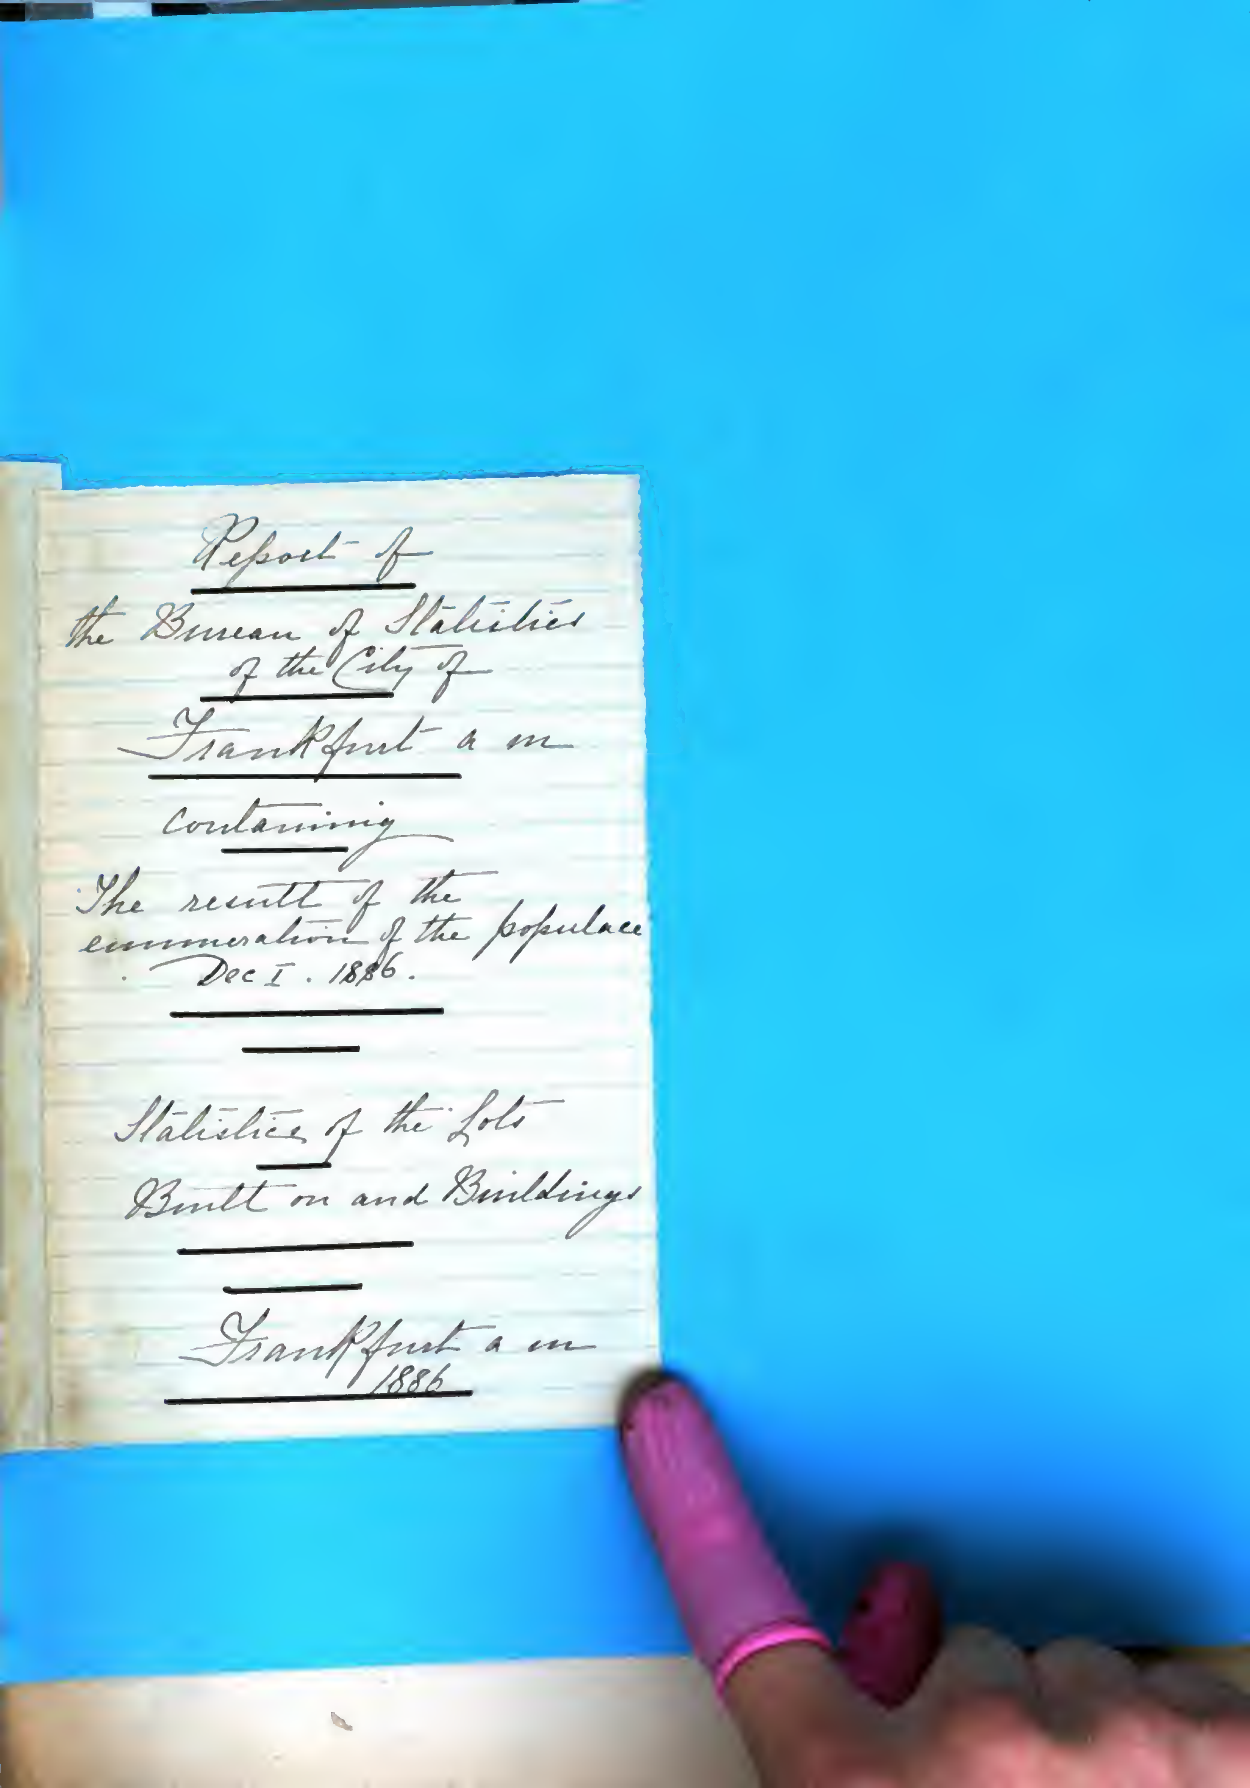 Report of
the Bureau of Statistics
of the City of
Frankfurt a m
containing
The result of the
enumeration of the populace
Dec I. 1886.
Statistics of the Lots
Built on and Buildings
Frankfurt a m
1886